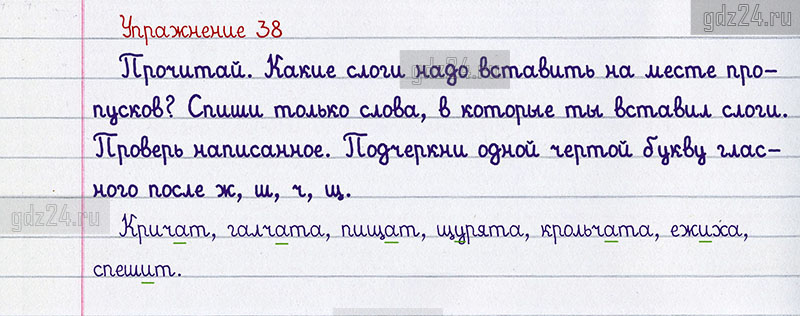 gdz24.ru
Упражнение 38
Прочитай. Какие слоги надо вставить на месте про-
gdz24.ru
пусков? Спиши только слова, в которые ты вставил слоги.
Проверь написанное. Подчеркни одной чертой букву глас-
ного после ж, ш, ч, щ.
gdz24.ru
Кричат, галчата, пищат, щурята, крольчата, ежиха,
спешит.